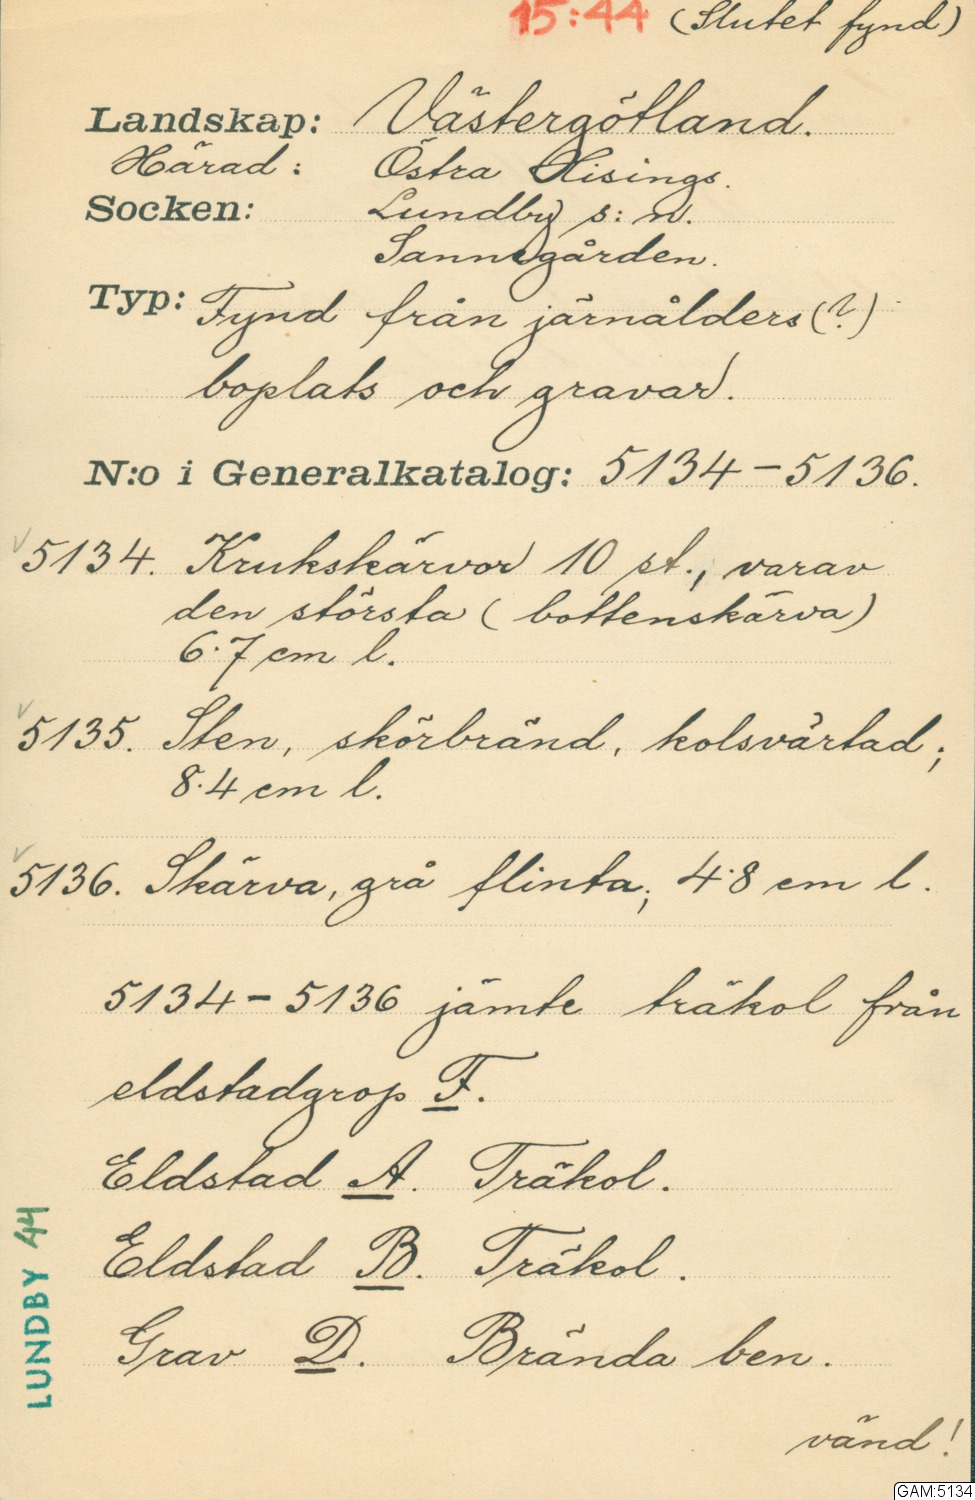 15:44 (Slutet fynd)
Landskap: Västergötland.
Härad: Östra Hisings.
Socken: Lundby s:n.
Sannegården.
Typ: Fynd från järnålders(?)
boplats och gravar.
N:o i Generalkatalog: 5134-5136.
√5134. Krukskärvor 10 st., varav
den största (bottenskärva)
6.7 cm l.
√5135. Sten, skörbränd, kolsvärtad;
8.4 cm l.
√5136. Skärva, grå flinta; 4.8 cm l.
5134-5136 jämte träkol från
eldstadgrop F.
Eldstad A. Träkol.
Eldstad B. Träkol.
Grav D. Brända ben.
vänd!
LUNDBY 44
GAM:5134